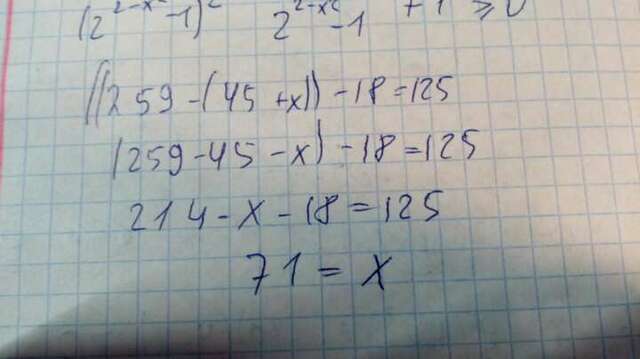 (2^{2-x^2}-1)^2 2^{2-x^2}-1 +1 ≥ 0
((259-(45+x))-18=125
(259-45-x)-18=125
214-x-18=125
71=x